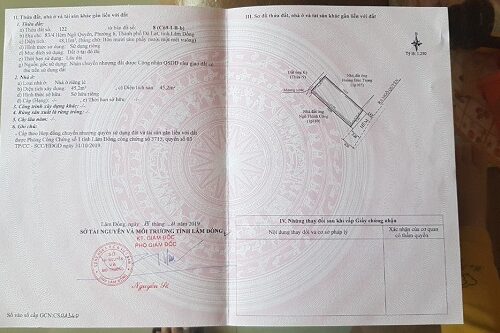 II. Thửa đất, nhà ở và tài sản khác gắn liền với đất
1. Thửa đất:
a) Thửa đất số: 122 tờ bản đồ số 8 (C69-I-B-b)
b) Địa chỉ: 83/4 Hẻm Ngô Quyền, Phường 6, Thành phố Đà Lạt, tỉnh Lâm Đồng
c) Diện tích: m², (bằng chữ: Bốn mươi phẩy mười một mét vuông)
d) Hình thức sử dụng: Sử dụng riêng
đ) Mục đích sử dụng: Đất ở tại đô thị
e) Thời hạn sử dụng: Lâu dài
g) Nguồn gốc sử dụng: Nhận chuyển nhượng đất được Công nhận QSDĐ như giao đất có
thu tiền sử dụng đất
2. Nhà ở:
a) Loại nhà ở: Nhà ở riêng lẻ
b) Diện tích xây dựng: 45,2m² c) Diện tích sàn: 45,2m²
d) Hình thức sở hữu: Sở hữu riêng
đ) Cấp (Hạng): e) Thời hạn sở hữu:
3. Công trình xây dựng khác: -/-
4. Rừng sản xuất là rừng trồng: -/-
5. Cây lâu năm: -/-
6. Ghi chú:
- Cấp theo Hợp đồng chuyển nhượng quyền sử dụng đất và tài sản gắn liền với đất
được Phòng Công Chứng số 1 tỉnh Lâm Đồng công chứng số 3715, quyển số 05
TP/CC - SCC/HĐGD ngày 31/10/2019.
Lâm Đồng, ngày tháng 11 năm 2019
SỞ TÀI NGUYÊN VÀ MÔI TRƯỜNG TỈNH LÂM ĐỒNG
KT. GIÁM ĐỐC
PHÓ GIÁM ĐỐC
SỞ
TÀI NGUYÊN
VÀ
MÔI TRƯỜNG
Số vào sổ cấp GCN:
III. Sơ đồ thửa đất, nhà ở và tài sản khác gắn liền với đất
Nhà đất ông
Nhà đất ông
Ngô Thành Công
IV. Những thay đổi sau khi cấp Giấy chứng nhận
Nội dung thay đổi và cơ sở pháp lý
Xác nhận của cơ quan
có thẩm quyền